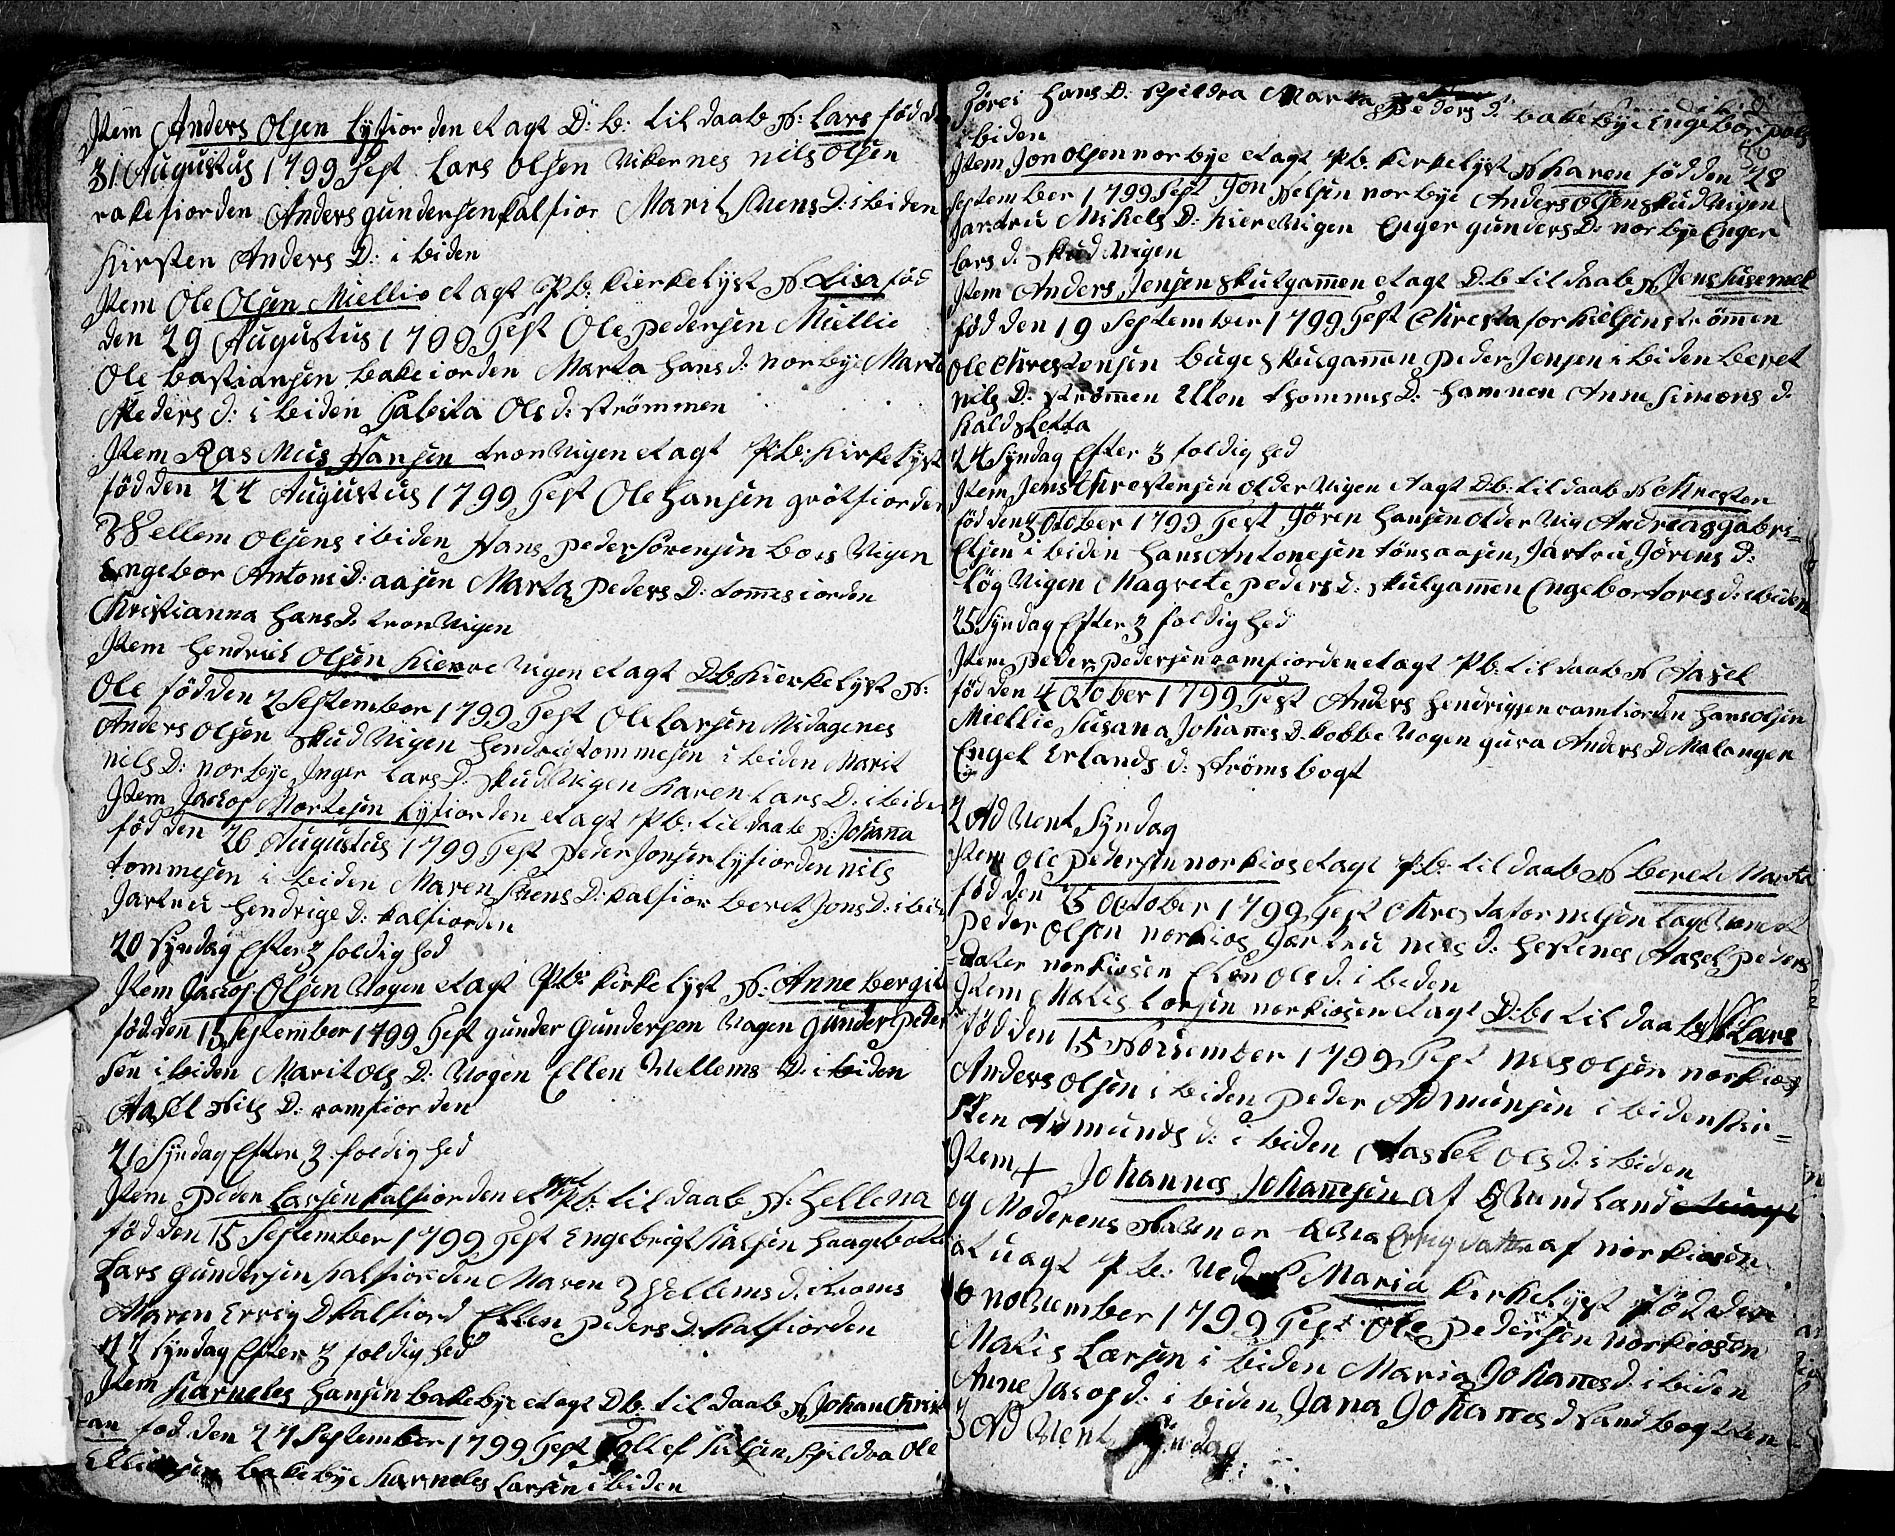 Item Anders Olsen Lysiorden et agt D: b: til daab N: Lars föd d
31 Augustus 1799 Test Lars Olsen Vikernes nils Olsen
rakefiorden Anders gundersen kalfior Marit Suens D: ibiden
Kirsten Anders D: i biden
Item Ole Olsen Miellie et agt P b: kierkelyst N Lisa föd
den 29 Augustus 1799 Test Ole pedersen Miellie
Ole bastiansen bakeiorden Marta Hans d: norbye Marte
Peders d: i biden Tabita Ols d: strömmen
Item Ras Mus Hansen tron Vigen et agt P b: Kirkelyst
föd den 24 Augustus 1799 Test Ole Hansen grötfiorden
Wellem Olsens ibiden Hans pedersörensen bors Vigen
Engebor Antoni D: aasen Marta peders D: tommesiorden
Christianna Hans d. tron Vigen
Item Hendrich Olsen Kierre Vigen et agt D:b: Kierkelyst N:
Ole föd den 2 September 1799 Test Ole Larsen Midagenes
Anders Olsen Skud Vigen Hendrig tommesen i biden Marit
nils D: norbye Inger Lars D. Skud Vigen Karen Lars D. i biden
Item Jackop Mortesen Lysiorden et agt P b: til daab N: Johana
föd den 26 Augustus 1799 Test peder Jonsen lysiorden nils
tommesen i biden Maren Suens D: kalfior beret Jons D: i bid
Jartru Hendrige D: kalfiorden
20 Syndag Efter 3 foldighed
Item Jacop Olsen Vogen et agt P b: kirkelyst N: Anne bergit
föd den 15 September 1799 Test gunder Gunderson Vagen gunder Peder
sen i biden Marit Ols D: Vogen Ellen Wellems D. i biden
Aasel Nils D: ramfiorden
21 Syndag Efter 3 foldighed
Item Peder Larsen kalfiorden et agt P b: til daab N. Hellena
föd den 15 September 1799 Test Engebrigt Halsen Haagebote
Lars gundersen kalfiorden Maren Wellems d. i troms
Maren Errig D kalfiord Ellen peders D. kalfiorden
22 Syndag Efter 3 foldighed
Item Karneles Hansen bakebye et agt D b: til daab N Johan Chris
an föd den 27 September 1799 Test Tollef Spildra Ole
bakebye Karneles Larsen i biden
Jörei Hans D: Spildra Marta Peders d: bakebye Engebor pols
i biden
30
Item Jon olsen norbye et agt P b. kirkelyst N karen föd den 28
September 1799 Test Jon Nelsen norbye Anders Olsen Skud Vigen
Jartru Mikels D: Kiere Vigen Enger gunders D: norbye Enger
Lars d: Skud Vigen
Item Anders Jensen Skulgammen et agt D:b til daab N Jens
föd den 19 September 1799 Test Christafor Nielsen strömmen
Ole Christensen buge Skulgammen peder Jensen i biden beret
nils D: strömmen Ellen Thommes D: Hamnen Anne Simons d
Kaldsletta
24 Syndag Efter 3 foldighed
Item Jens Christensen older Vigen et agt D:b: til daab N Christen
föd den 3 October 1799 Test Jören Hansen older Vig Andreas gabri-
Elsen i biden Hans Antonesen tönsaasen, Jartru Jörens D:
lög Vigen Magrete peders d: Skulgammen Engebor tores d: i biden
25 Syndag Efter 3 foldighed
Item peder pedersen ramfiorden et agt P b: til daab N Aasel
föd den 4 October 1799 Test Anders Hendrigsen ramfiorden Hans olsen
Miellie Susana Johannes D. kobbe Vogen gura Anders D Malangen
Engel Erlands d: Strömsbogt
2 Ad Vent Syndag
Item Ole Pedersen norkios et agt P b: til daab N Beret Marta
föd den 25 October 1799 Test Christafor nilsen
Peder Olsen norkios Jartru nils d: Hessenes Aasel peders
daler norkiosen Elen Ols d: i biden
Item Matis Larsen norkiosen et agt D:b: til daab N Lars
föd den 15 November 1799 Test nils olsen norkios
Anders Olsen i biden Peder Admunsen i biden kir-
sten Admunds d: i biden Aassel Ols d: i biden
Item + Johannes Johannesen af QVind Land
og Moderens Navn er Abba Errig datter af norkiosen
et uagt P b: Ved N Maria Kirkelyst föd den
10 november 1799 Test Ole pedersen norkiosen
Matis Larsen i biden Maria Johannes d: i biden
Anne Jacops d: i biden Jana Johannes d Sandbogten
3 Ad Vent Syndag